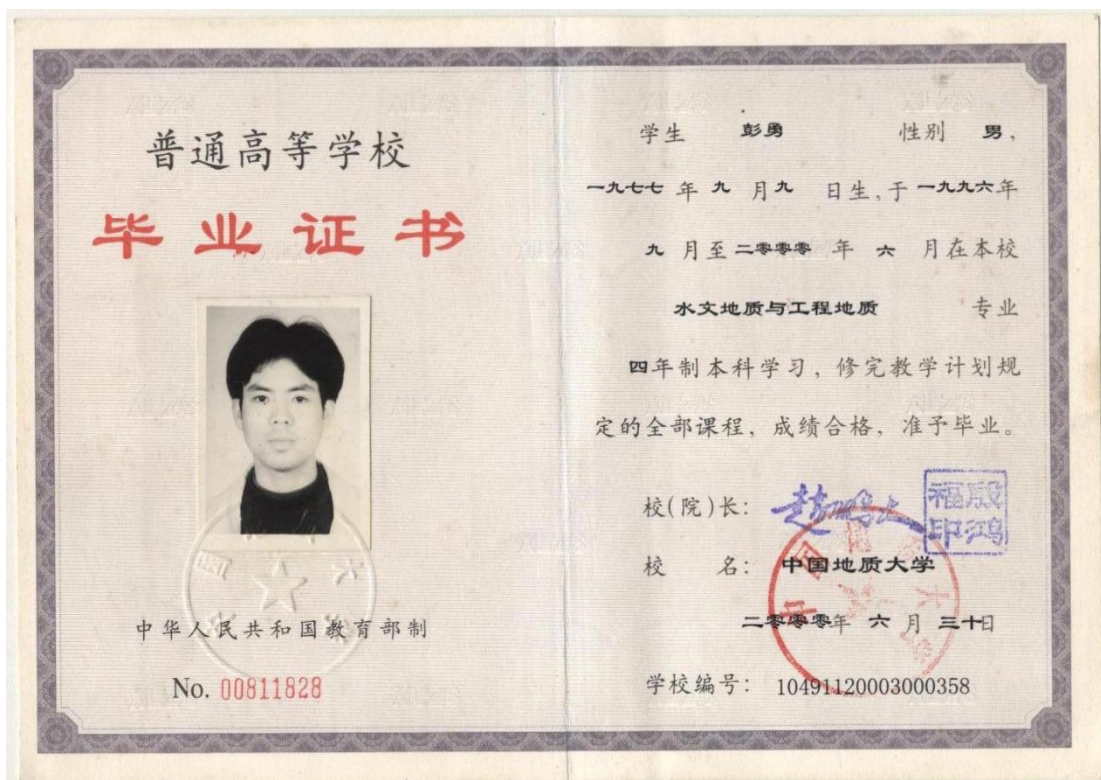 普通高等学校
毕业证书
中华人民共和国教育部制
No. 00811828
学生 彭勇 性别 男,
一九七七 年 九 月 九 日生,于 一九九六年
九 月至 二零零零 年 六 月在本校
水文地质与工程地质 专业
四年制本科学习, 修完教学计划规
定的全部课程, 成绩合格, 准予毕业。
校(院)长: 赵鹏大
殷鸿福印
校 名: 中国地质大学
二零零零年 六 月 三十日
学校编号: 10491120003000358